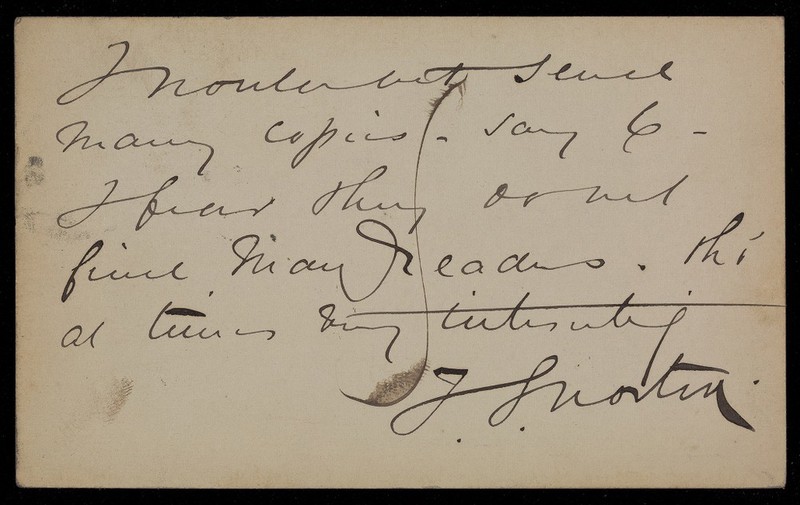 I would not send
many copies - say 6 -
I fear they do not
find many Readers. tho'
at times very interesting